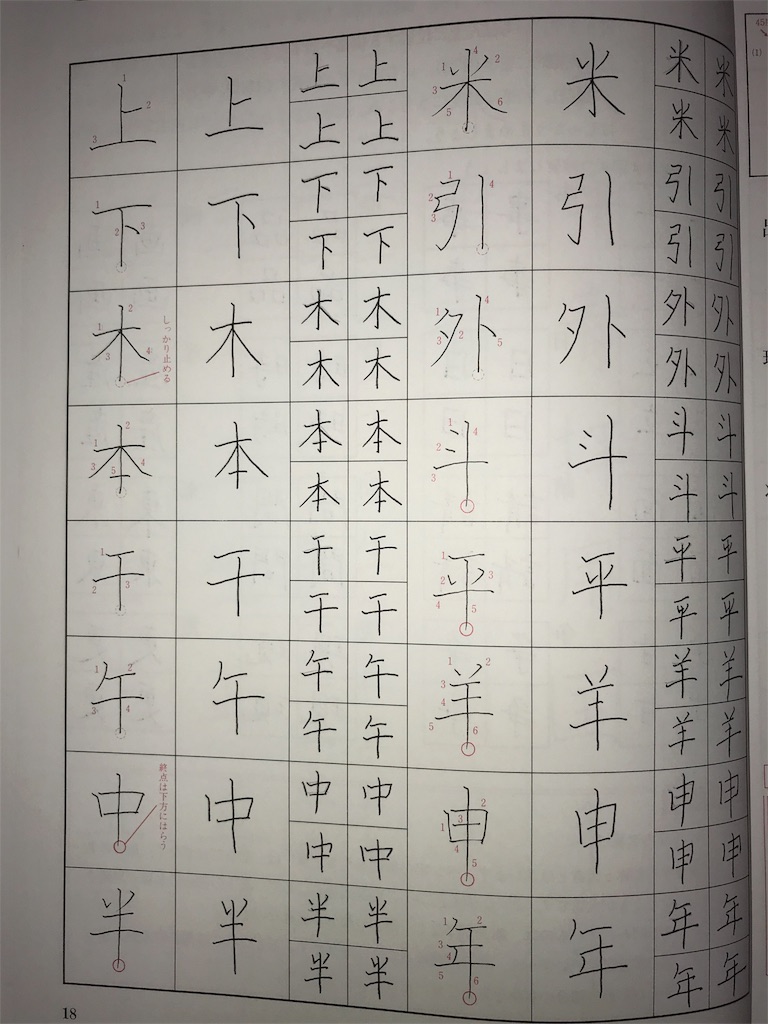 上 上 上 上 上 上 米 米 米 米 米 米
下 下 下 下 下 下 引 引 引 引 引 引
木 木 木 木 木 木 外 外 外 外 外 外
しっかり止める
本 本 本 本 本 本 斗 斗 斗 斗 斗 斗
干 干 干 干 干 干 平 平 平 平 平 平
午 午 午 午 午 午 羊 羊 羊 羊 羊 羊
中 中 中 中 中 中 申 申 申 申 申 申
終点は下方にはらう
半 半 半 半 半 半 年 年 年 年 年 年
18